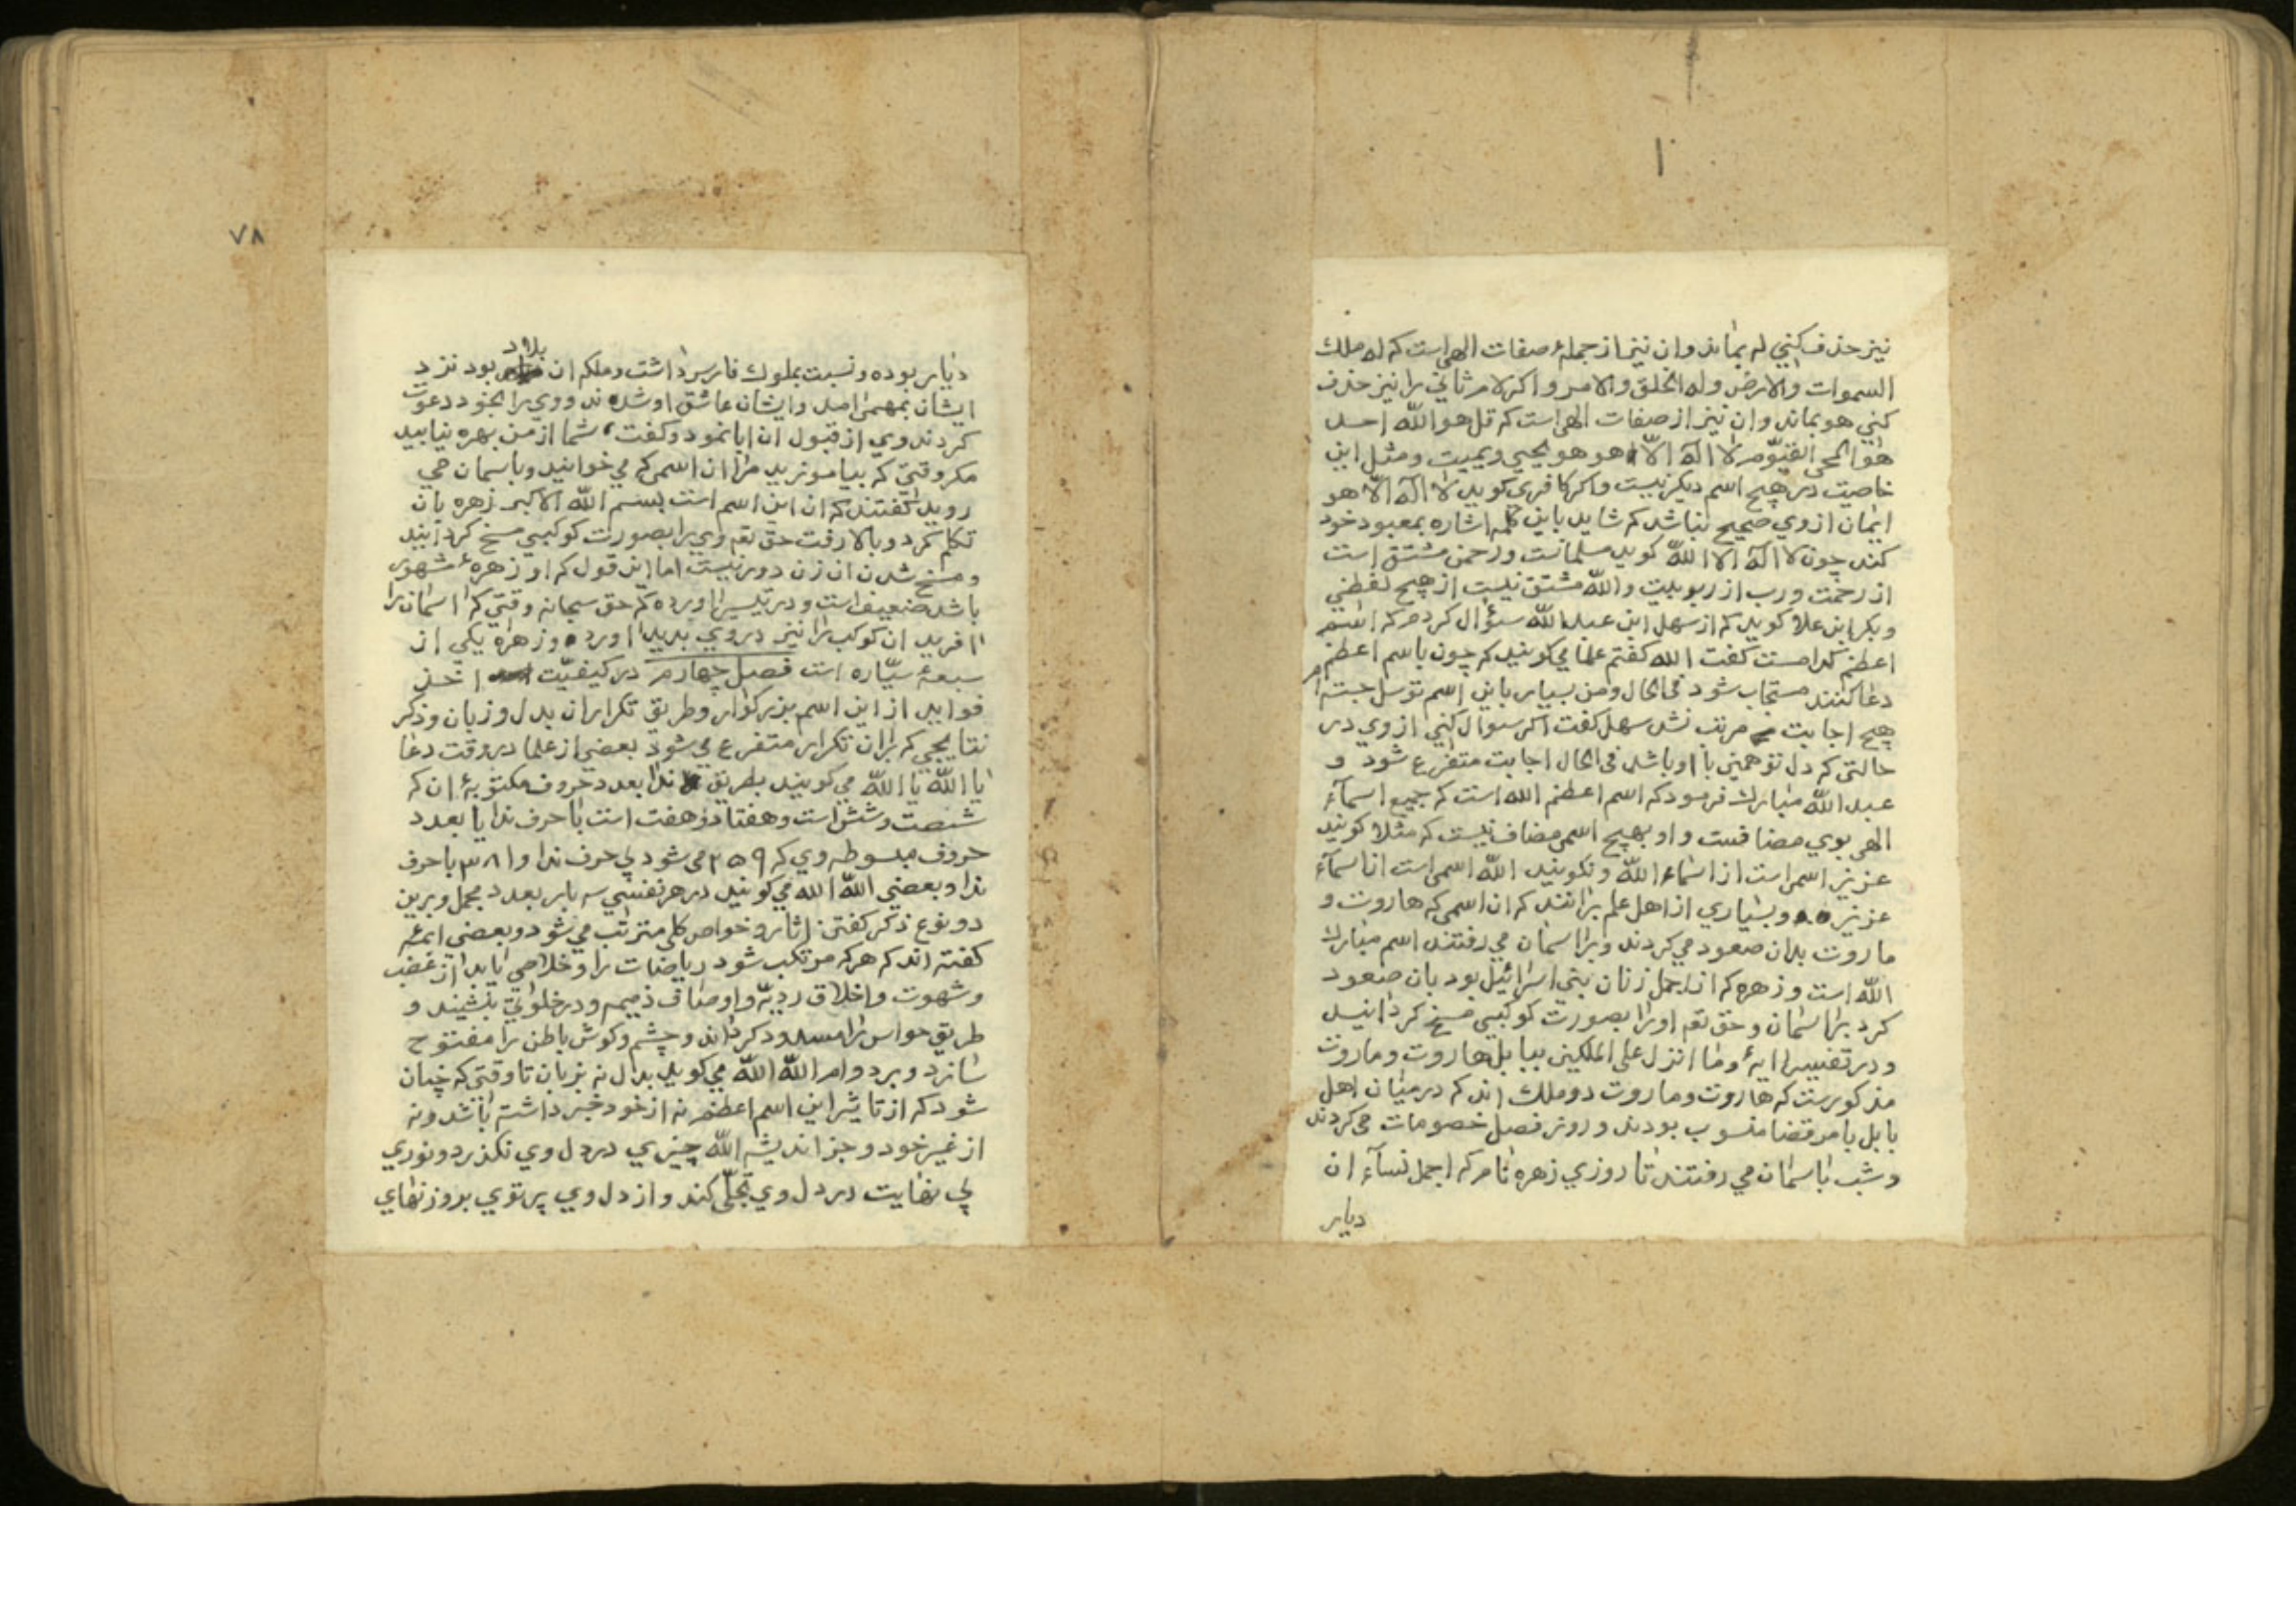 نيز حذف كني له بماند وان نيز از جملهٔ صفات الهي است كه له ملك
السموات والارض وله الخلق والامر واكر لام ثاني را نيز حذف
كني هو بماند وان نيز از صفات الهي است كه قل هو الله احد
هو الحي القيوم لا اله الا هو هو يحيي ويميت ومثل اين
خاصيت در هيچ اسم ديكر نيست واكر كافري كويد لا اله الا هو
ايمان از وي صحيح نباشد كه شايد باين كلمه اشاره بمعبود خود
كند چون لا اله الا الله كويد مسلمانست ورحمن مشتق است
از رحمت ورب از ربوبيت والله مشتق نيست از هيچ لفظي
وبكر ابن علا كويد كه از سهل ابن عبد الله سؤال كردم كه اسم
اعظم كدامست كفت الله كفتم علما مي كويند كه چون باسم اعظم
دعا كنند مستجاب شود في الحال ومن بسيار باين اسم توسل جسته ام
هيچ اجابت مرتب نشد سهل كفت اكر سوال كني از وي در
حالتي كه دل تو همين با او باشد في الحال اجابت متفرع شود و
عبد الله مبارك فرمود كه اسم اعظم الله است كه جميع اسمآء
الهي بوي مضافست واو بهيچ اسمي مضاف نيست كه مثلا كويند
عزيز اسمي است از اسماء الله ونكويند الله اسمي است از اسمآء
عزيز وبسياري از اهل علم برانند كه ان اسمي كه هاروت و
ماروت بدان صعود مي كردند وبر اسمان مي رفتند اسم مبارك
الله است وزهره كه از اجمل زنان بني اسرائيل بود بان صعود
كرد بر اسمان وحق تعم اورا بصورت كوكبي مسخ كردانيد
ودر تفسير ايهٔ وما انزل على الملكين ببابل هاروت وماروت
مذكورست كه هاروت وماروت دو ملك اند كه در ميان اهل
بابل بامر قضا منسوب بودند وروز فصل خصومات مي كردند
وشب باسمان مي رفتند تا روزي زهره نام كه اجمل نسآء ان
ديار
٧٨
ديار بوده ونسبت بملوك فارس داشت وملكه ان بلاد بود نزد
ايشان بمهمي امد وايشان عاشق او شدند ووي را بخود دعوت
كردند وي از قبول ان ابا نمود وكفت شما از من بهره نيابيد
مكر وقتي كه بياموزيد مرا ان اسمي كه مي خوانيد وباسمان مي
رويد كفتند كه ان اين اسم است بسم الله الاكبر زهره بان
تكلم كرد وبالا رفت حق تعم وي را بصورت كوكبي مسخ كردانيد
ومسخ شدن ان زن دور نيست اما اين قول كه او زهرهٔ مشهور
باشد ضعيف است ودر تيسير اورده كه حق سبحانه وقتي كه اسمان را
افريد ان كوكب را نيز در وي پديد اورد وزهره يكي از
سبعهٔ سيّاره است فصل چهارم در كيفيّت اخذ
فوايد از اين اسم بزركوار وطريق تكرار ان بدل وزبان وذكر
نتايجي كه بران تكرار متفرع مي شود بعضي از علما در وقت دعا
يا الله يا الله مي كويند بطريق ندا بعدد حروف مكتوبهٔ ان كه
شصت وشش است وهفتاد وهفت است با حرف ندا يا بعدد
حروف مبسوطه وي كه ٢٥٩ مي شود بي حرف ندا و ٣٨١ با حرف
ندا وبعضي الله الله مي كويند در هر نفسي سه بار بعدد مجمل وبرين
دو نوع ذكر كفتن اثار وخواص كلي مترتب مي شود وبعضي ايمه
كفته اند كه هر كه مرتكب شود رياضات را وخلاصي يابد از غضب
وشهوت واخلاق رديّه واوصاف ذميمه ودر خلوتي بنشيند و
طريق حواس را مسدود كرداند وچشم وكوش باطن را مفتوح
سازد وبر دوام الله الله مي كويد بدل نه بزبان تا وقتي كه چنان
شود كه از تاثير اين اسم اعظم نه از خود خبر داشته باشد ونه
از غير خود وجز انديشه الله چيزي در دل وي نكذرد ونوري
بي نهايت در دل وي تجلّي كند واز دل وي پرتوي بروزنهاي